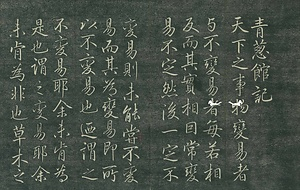 青蔥館記
天下之事物變易者
与不變易者每若相
反而其實相因常變
易不定然後一定不
變易則未能嘗不變
易而其為變易即所
以不變易也迺謂之
不變易耶余未肯為
是也謂之變易耶余
未肯為非也草木之